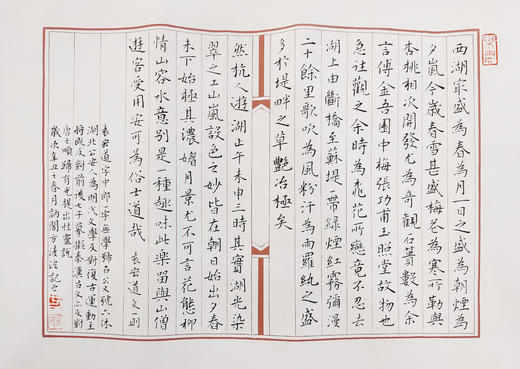 西湖最盛為春為月一日之盛為朝煙為
夕嵐今歲春雪甚盛梅花為寒所勒與
杏桃相次開發尤為奇觀石簣數為余
言傅金吾園中梅張功甫玉照堂故物也
急往觀之余時為桃花所戀竟不忍去
湖上由斷橋至蘇堤一帶綠煙紅霧彌漫
二十餘里歌吹為風粉汗為雨羅紈之盛
多於堤畔之草艷冶極矣
然杭人遊湖止午未申三時其實湖光染
翠之工山嵐設色之妙皆在朝日始出夕舂
未下始極其濃媚月景尤不可言花態柳
情山容水意別是一種趣味此樂留與山僧
遊客受用安可為俗士道哉 袁宏道文一則
袁宏道字中郎一字無學號石公又號六休
湖北公安人為明代文學反對復古運動主
將既反對前後七子摹擬秦漢古文亦反對
唐之順歸有光提出性靈說
歲次辛丑之春月訪閣方淩波記之